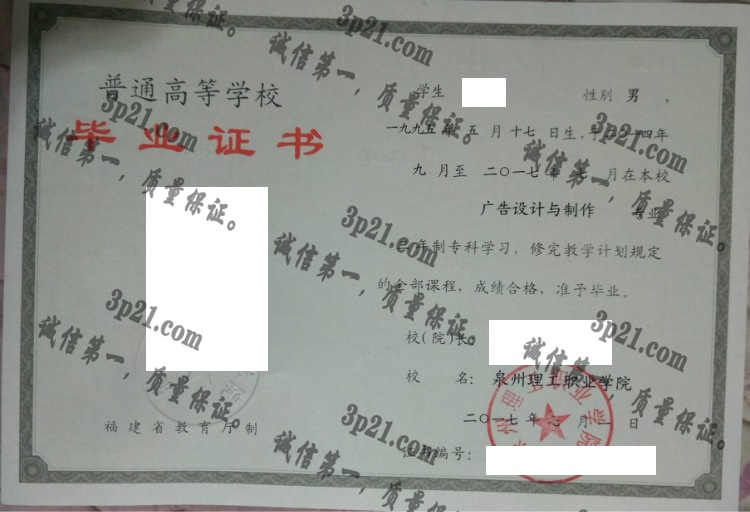 普通高等学校
毕业证书
福建省教育厅制
学生
性别 男 ，
一九九五年 五 月 十七 日生，于二〇一四年
九 月至 二〇一七年 七 月在本校
广告设计与制作 专业
三年制专科学习，修完教学计划规定
的全部课程，成绩合格，准予毕业。
校（院）长：
校 名： 泉州理工职业学院
二〇一七年 七 月 一 日
证书编号：
3p21.com
诚信第一，质量保证。
3p21.com
诚信第一，质量保证。
3p21.com
诚信第一，质量保证。
3p21.com
诚信第一，质量保证。
3p21.com
诚信第一，质量保证。
3p21.com
诚信第一，质量保证。
3p21.com
诚信第一，质量保证。
质量保证。